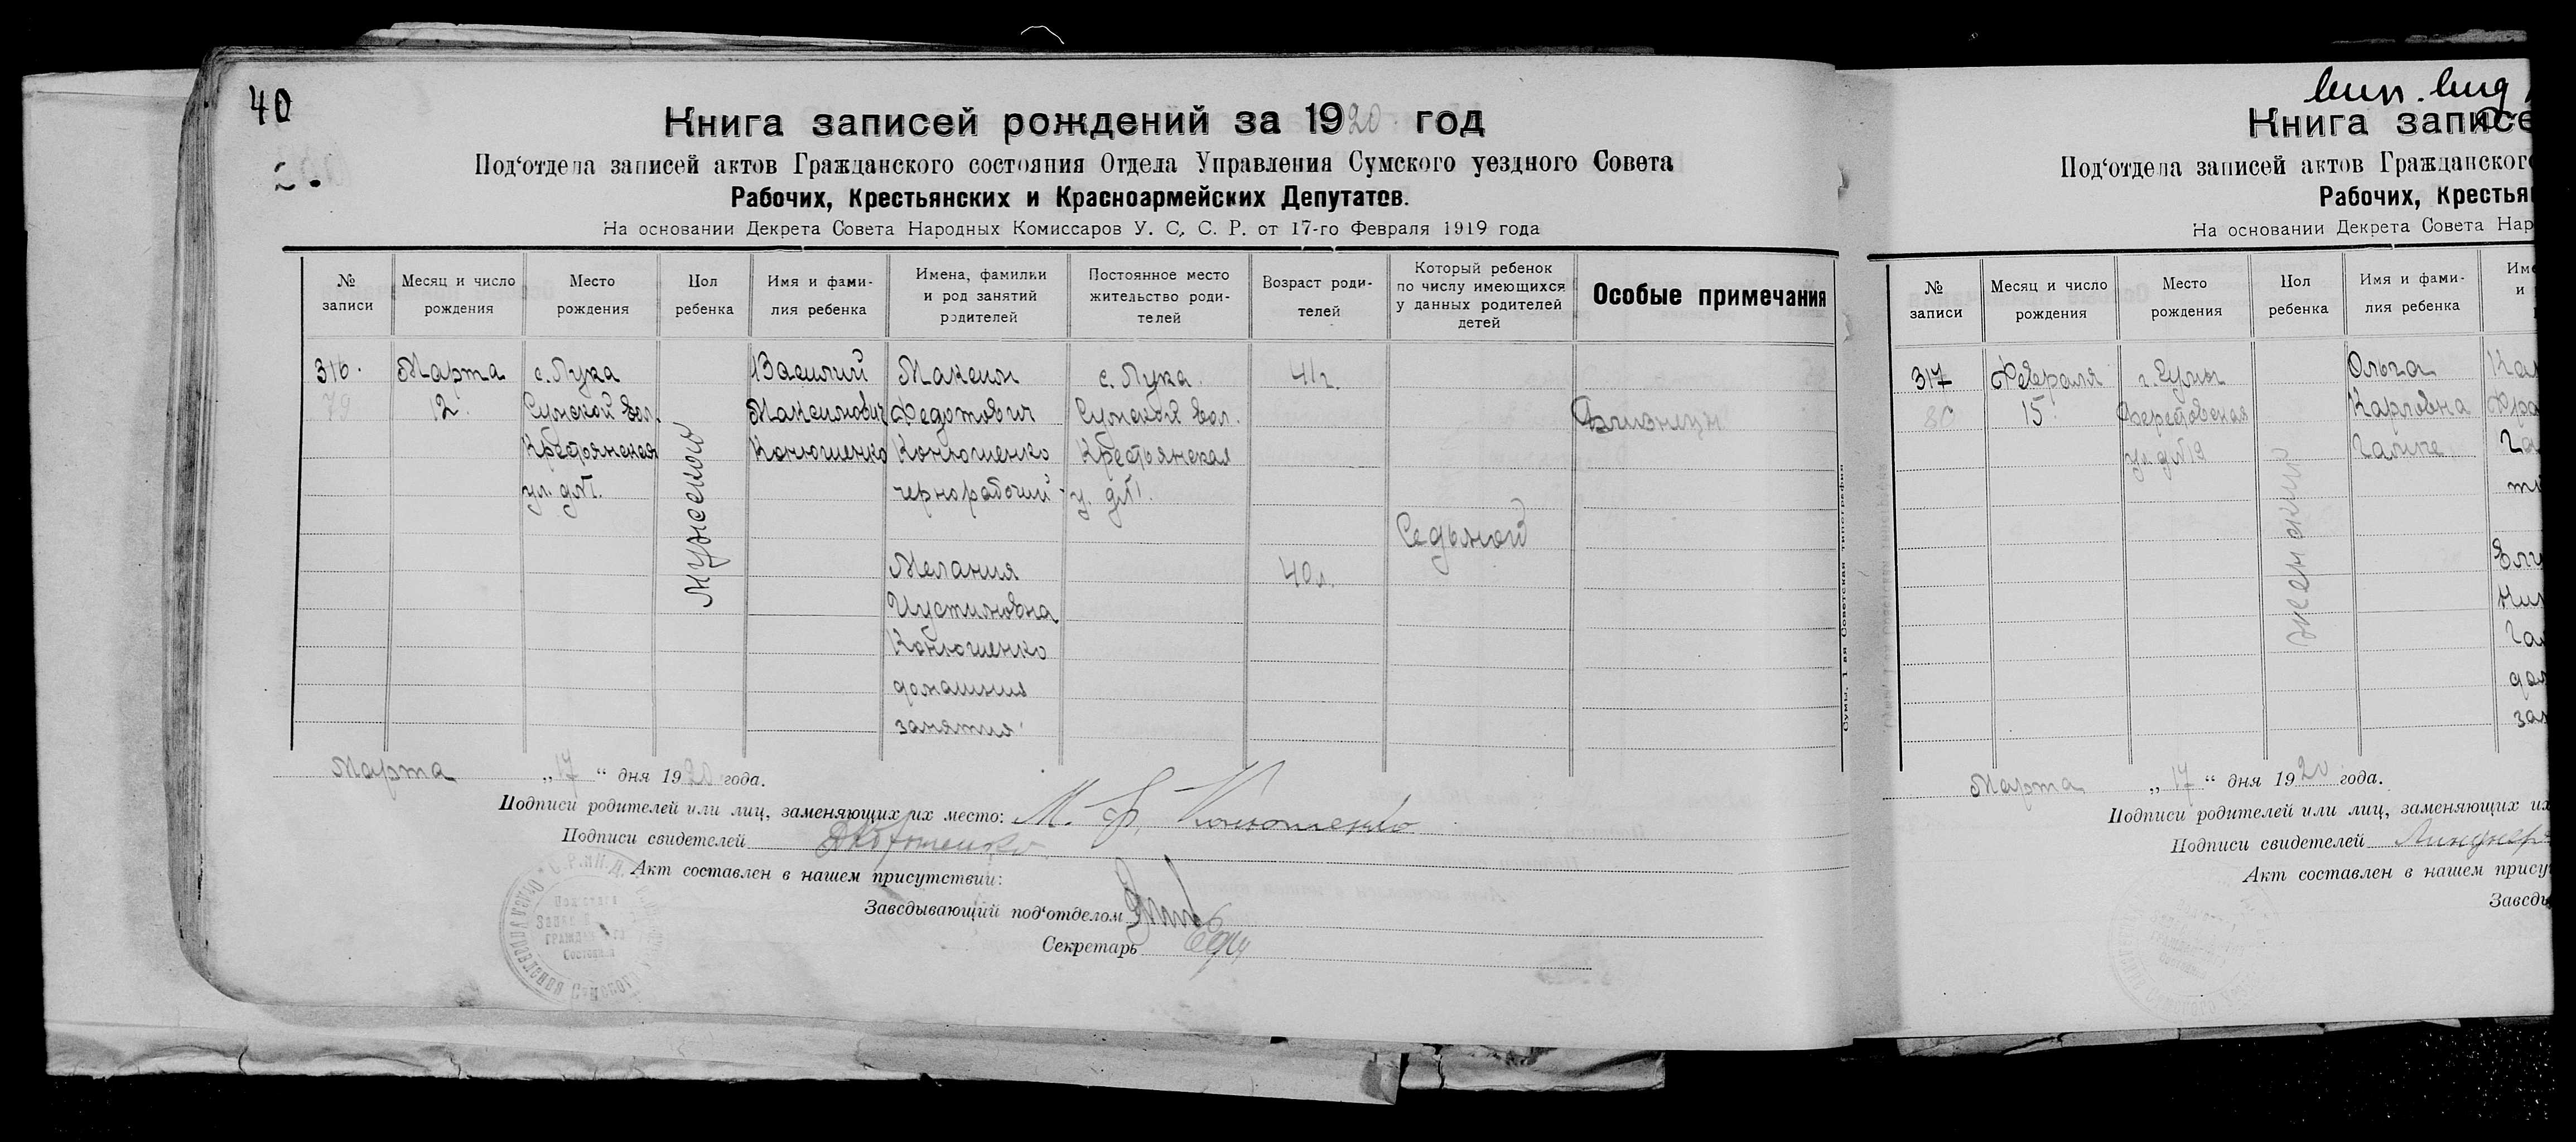 40
2.
Книга записей рождений за 1920 год
Под‘отдела записей актов Гражданского состояния Отдела Управления Сумского уездного Совета
Рабочих, Крестьянских и Красноармейских Депутатов.
На основании Декрета Совета Народных Комиссаров У. С. С. Р. от 17-го Февраля 1919 года
№ записи
Месяц и число рождения
Место рождения
Пол ребенка
Имя и фами- лия ребенка
Имена, фамилии и род занятий родителей
Постоянное место жительство роди- телей
Возраст роди- телей
Который ребенок по числу имеющихся у данных родителей детей
Особые примечания
316.
79
Марта
12.
с. Лука
Сумской вол.
Крестьянская
ул. д№1.
Мужеского
Василий
Максимович
Конюшенко
Максим
Федотович
Конюшенко
чернорабочий
Мелания
Иустиновна
Конюшенко
домашния
занятия
с. Лука.
Сумской вол.
Крестьянская
у. д№1.
41г.
40л.
Седьмой
Близнецы
Марта „17“ дня 1920 года.
Подписи родителей или лиц, заменяющих их место: М. Ф. Конюшенко
Подписи свидетелей
Акт составлен в нашем присутствии:
Заведывающий под‘отделом
Секретарь
Сумы. 1-ая Советская типография
Книга записе
Под‘отдела записей актов Гражданского
Рабочих, Крестьян
На основании Декрета Совета Нар
№ записи
Месяц и число рождения
Место рождения
Пол ребенка
Имя и фами- лия ребенка
Име
и
317
80
Февраля
15.
г. Сумы
ул. д№19
женский
Ольга
Карловна
Марта „17“ дня 1920 года.
Подписи родителей или лиц, заменяющих их
Подписи свидетелей
Акт составлен в нашем прису
Заведы